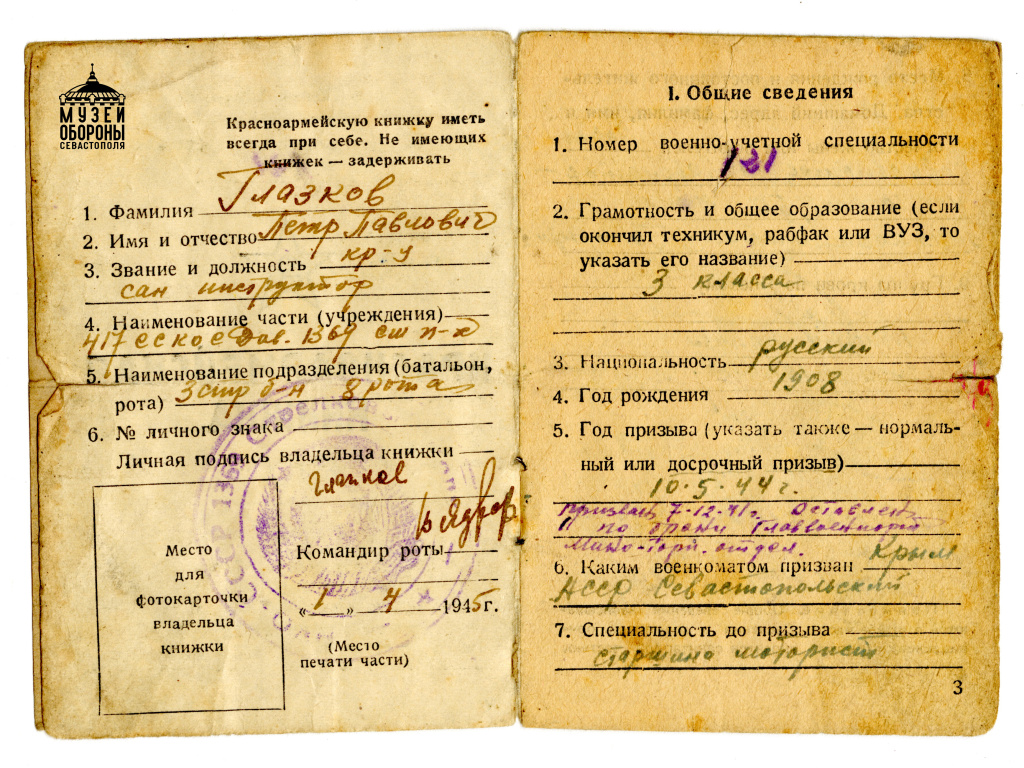 МУЗЕЙ
ОБОРОНЫ
СЕВАСТОПОЛЯ
Красноармейскую книжку иметь
всегда при себе. Не имеющих
книжек — задерживать
1. Фамилия Глазков
2. Имя и отчество Пётр Павлович
3. Звание и должность кр-ц
сан инструктор
4. Наименование части (учреждения)
417 1369
5. Наименование подразделения (батальон,
рота) 3 стр б-н 8 рота
6. № личного знака
Личная подпись владельца книжки
Глазков
Командир роты
„1" 4 1945 г.
(Место
печати части)
Место
для
фотокарточки
владельца
книжки
I. Общие сведения
1. Номер военно-учетной специальности
121
2. Грамотность и общее образование (если
окончил техникум, рабфак или ВУЗ, то
указать его название)
3 класса
3. Национальность русский
4. Год рождения 1908
5. Год призыва (указать также — нормаль-
ный или досрочный призыв)
10.5.44 г.
Призван 7-12-41г. Оставлен
по
отдел.
6. Каким военкоматом призван Крым
АССР Севастопольский
7. Специальность до призыва
старшина моторист
3